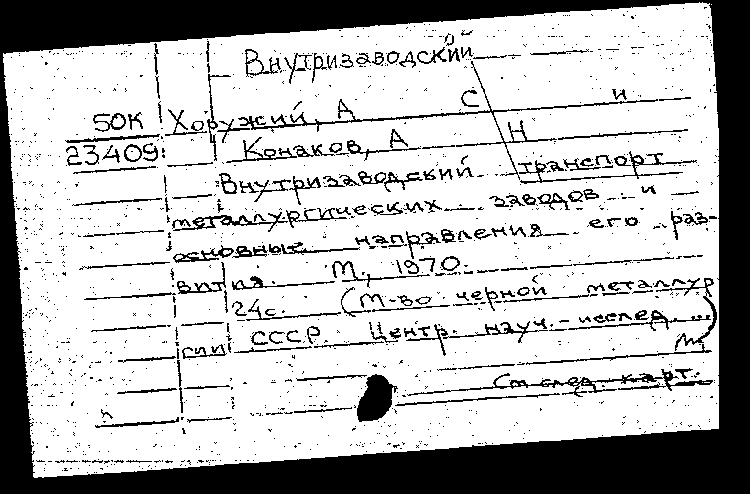 Внутризаводский
50К Хоружий, А С и
23409 Конаков, А Н
Внутризаводский транспорт
металлургических заводов и
основные направления его раз-
вития. М., 1970.
24с. (М-во черной металлур
гии СССР. Центр. науч.-исслед. ...)
См след. карт.